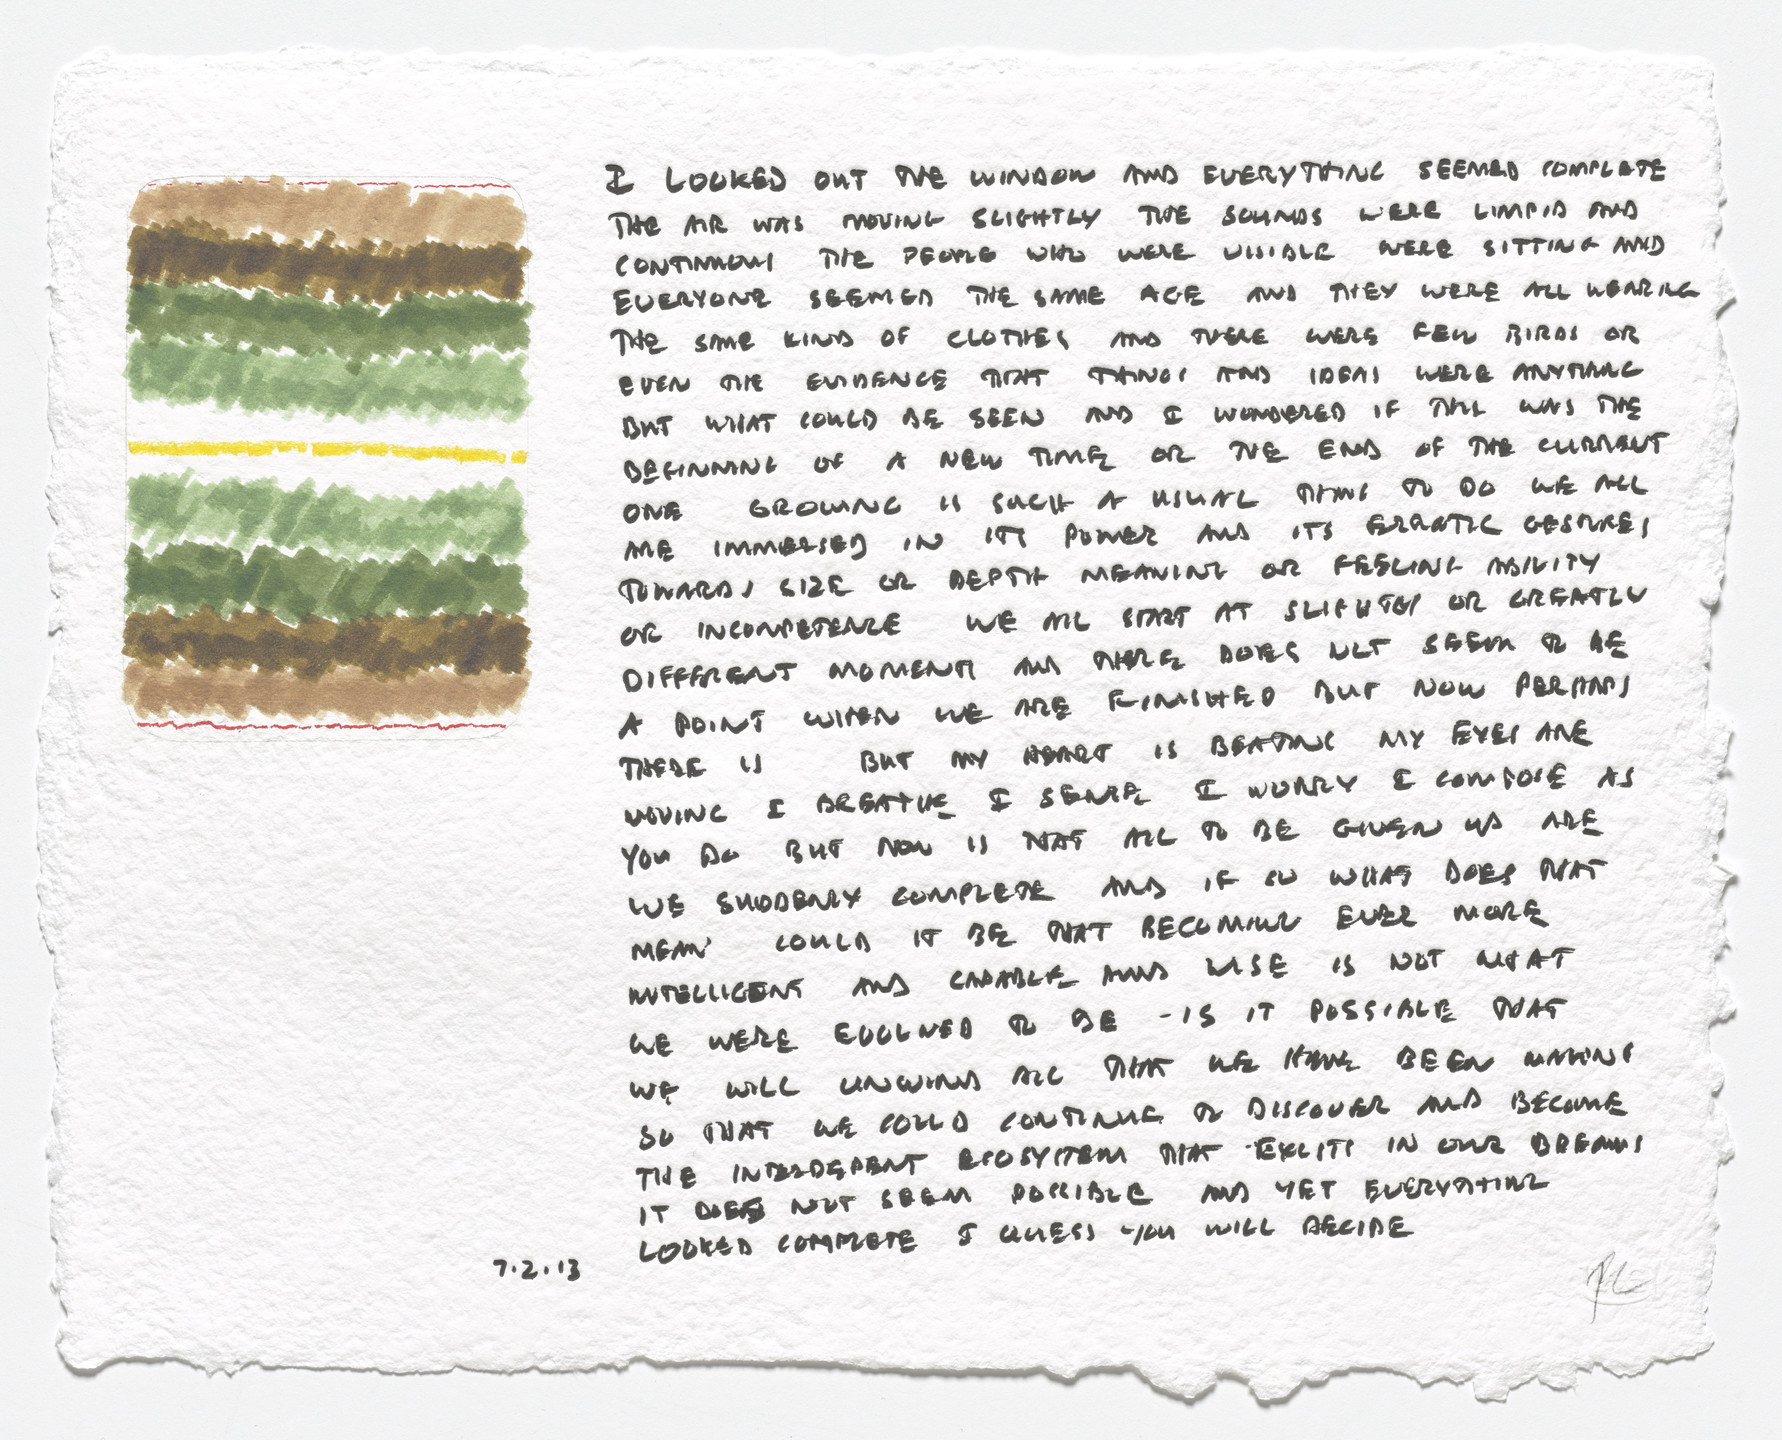 I LOOKED OUT THE WINDOW AND EVERYTHING SEEMED COMPLETE
THE AIR WAS MOVING SLIGHTLY THE SOUNDS WERE LIMPID AND
CONTINUOUS THE PEOPLE WHO WERE VISIBLE WERE SITTING AND
EVERYONE SEEMED THE SAME AGE AND THEY WERE ALL WEARING
THE SAME KIND OF CLOTHES AND THERE WERE FEW BIRDS OR
EVEN THE EVIDENCE THAT THINGS AND IDEAS WERE ANYTHING
BUT WHAT COULD BE SEEN AND I WONDERED IF THIS WAS THE
BEGINNING OF A NEW TIME OR THE END OF THE CURRENT
ONE GROWING IS SUCH A USUAL THING TO DO WE ALL
ARE IMMERSED IN ITS POWER AND ITS ERRATIC GESTURES
TOWARDS SIZE OR DEPTH MEANING OR FEELING ABILITY
OR INCOMPETENCE WE ALL START AT SLIGHTLY OR GREATLY
DIFFERENT MOMENTS AND THERE DOES NOT SEEM TO BE
A POINT WHEN WE ARE FINISHED BUT NOW PERHAPS
THERE IS BUT MY HEART IS BEATING MY EYES ARE
MOVING I BREATHE I SENSE I WORRY I COMPOSE AS
YOU DO BUT NOW IS THAT ALL TO BE GIVEN UP ARE
WE SUDDENLY COMPLETE AND IF SO WHAT DOES THAT
MEAN COULD IT BE THAT BECOMING EVER MORE
INTELLIGENT AND CAPABLE AND WISE IS NOT WHAT
WE WERE EVOLVED TO BE - IS IT POSSIBLE THAT
WE WILL UNWIND ALL THAT WE HAVE BEEN MAKING
SO THAT WE COULD CONTINUE TO DISCOVER AND BECOME
THE ECOSYSTEM THAT EXISTS IN OUR DREAMS
IT DOES NOT SEEM POSSIBLE AND YET EVERYTHING
LOOKED COMPLETE I GUESS YOU WILL DECIDE
7.2.13